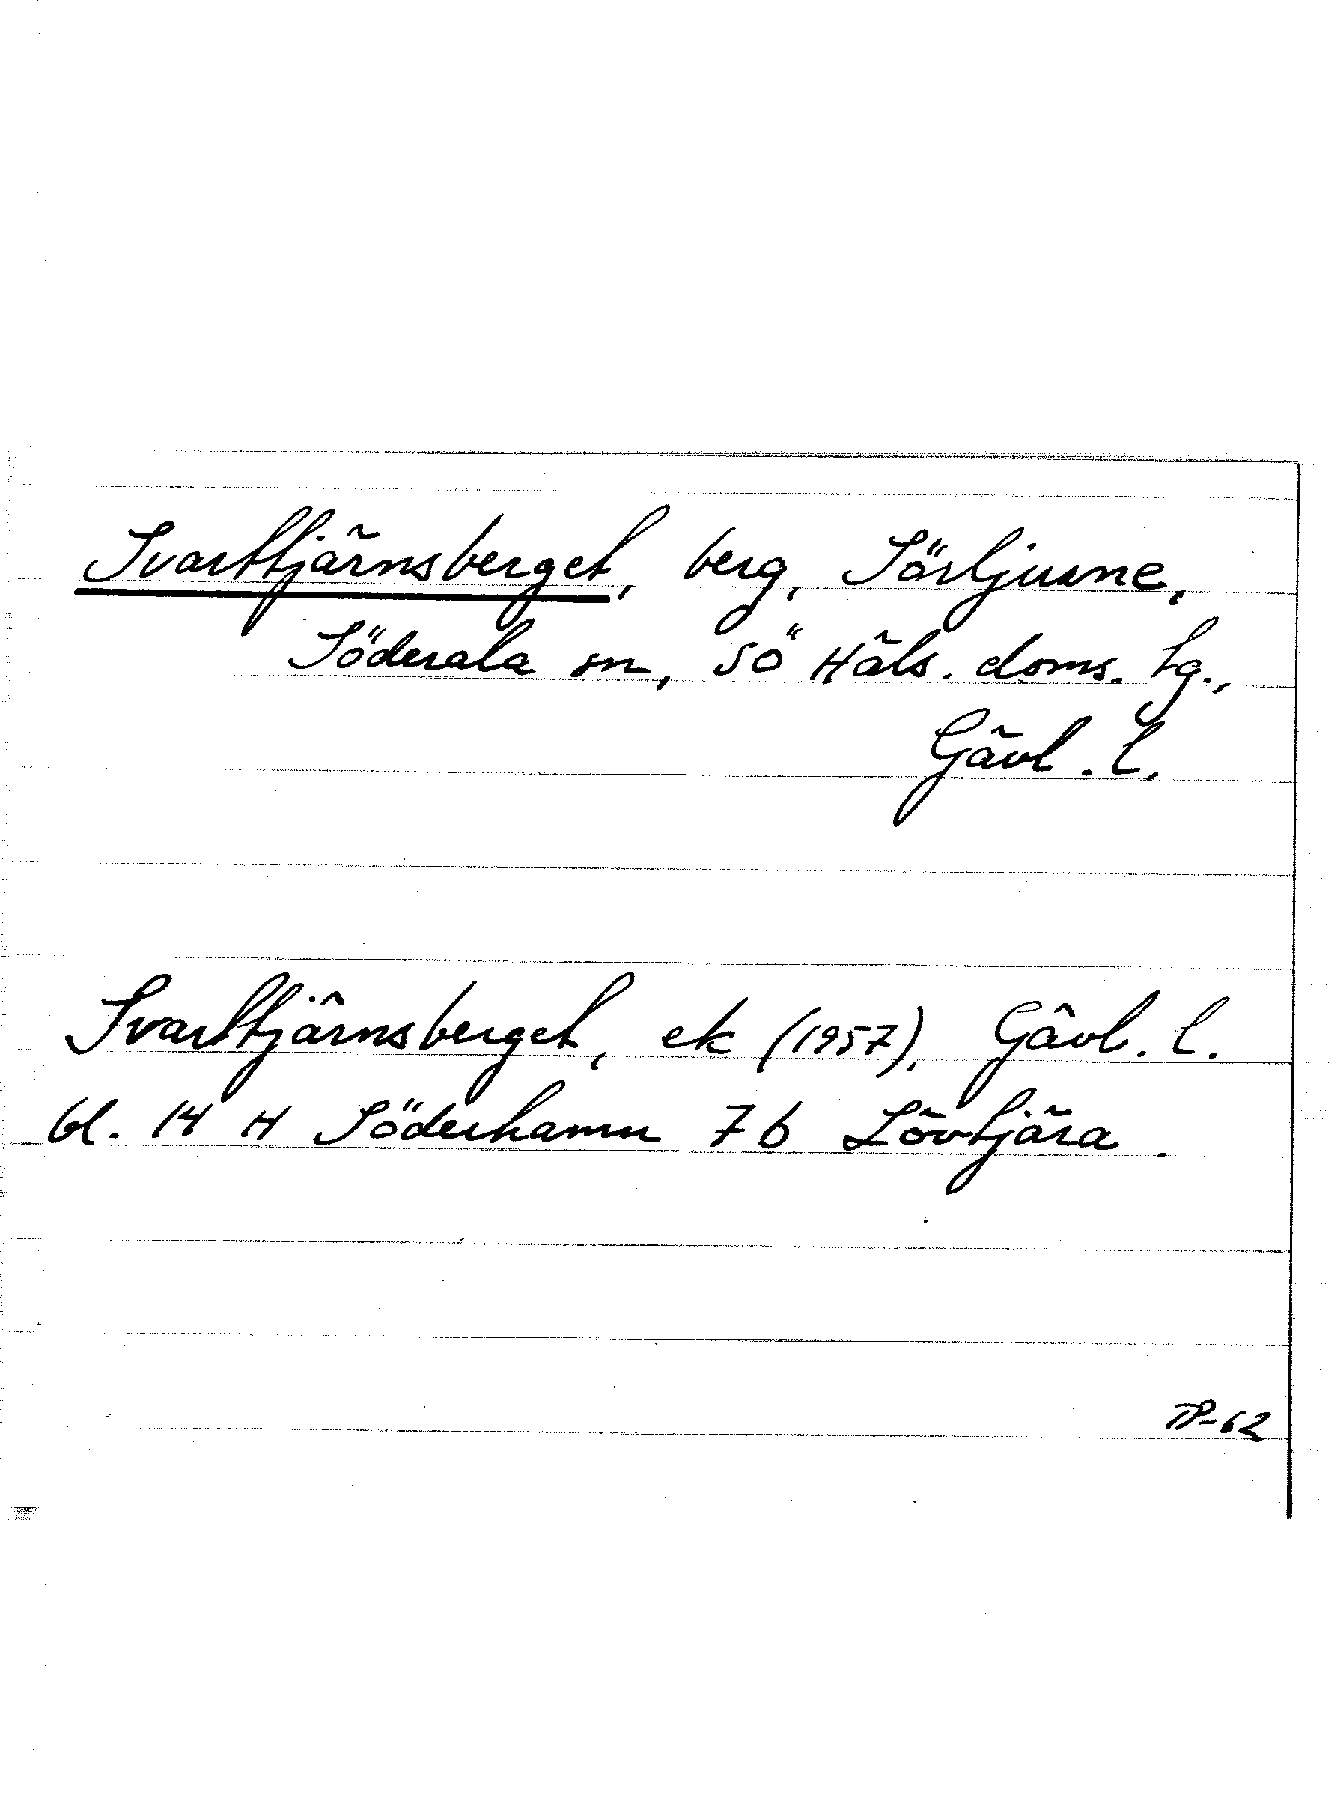 Svarttjärnsberget, berg, Sörljusne,
Söderala sn, SÖ Häls. doms. tg.,
Gävl. l.
Svarttjärnsberget, ek (1957), Gävl. l.
bl. 14 H Söderhamn 7 b Lövtjära.
TP-62